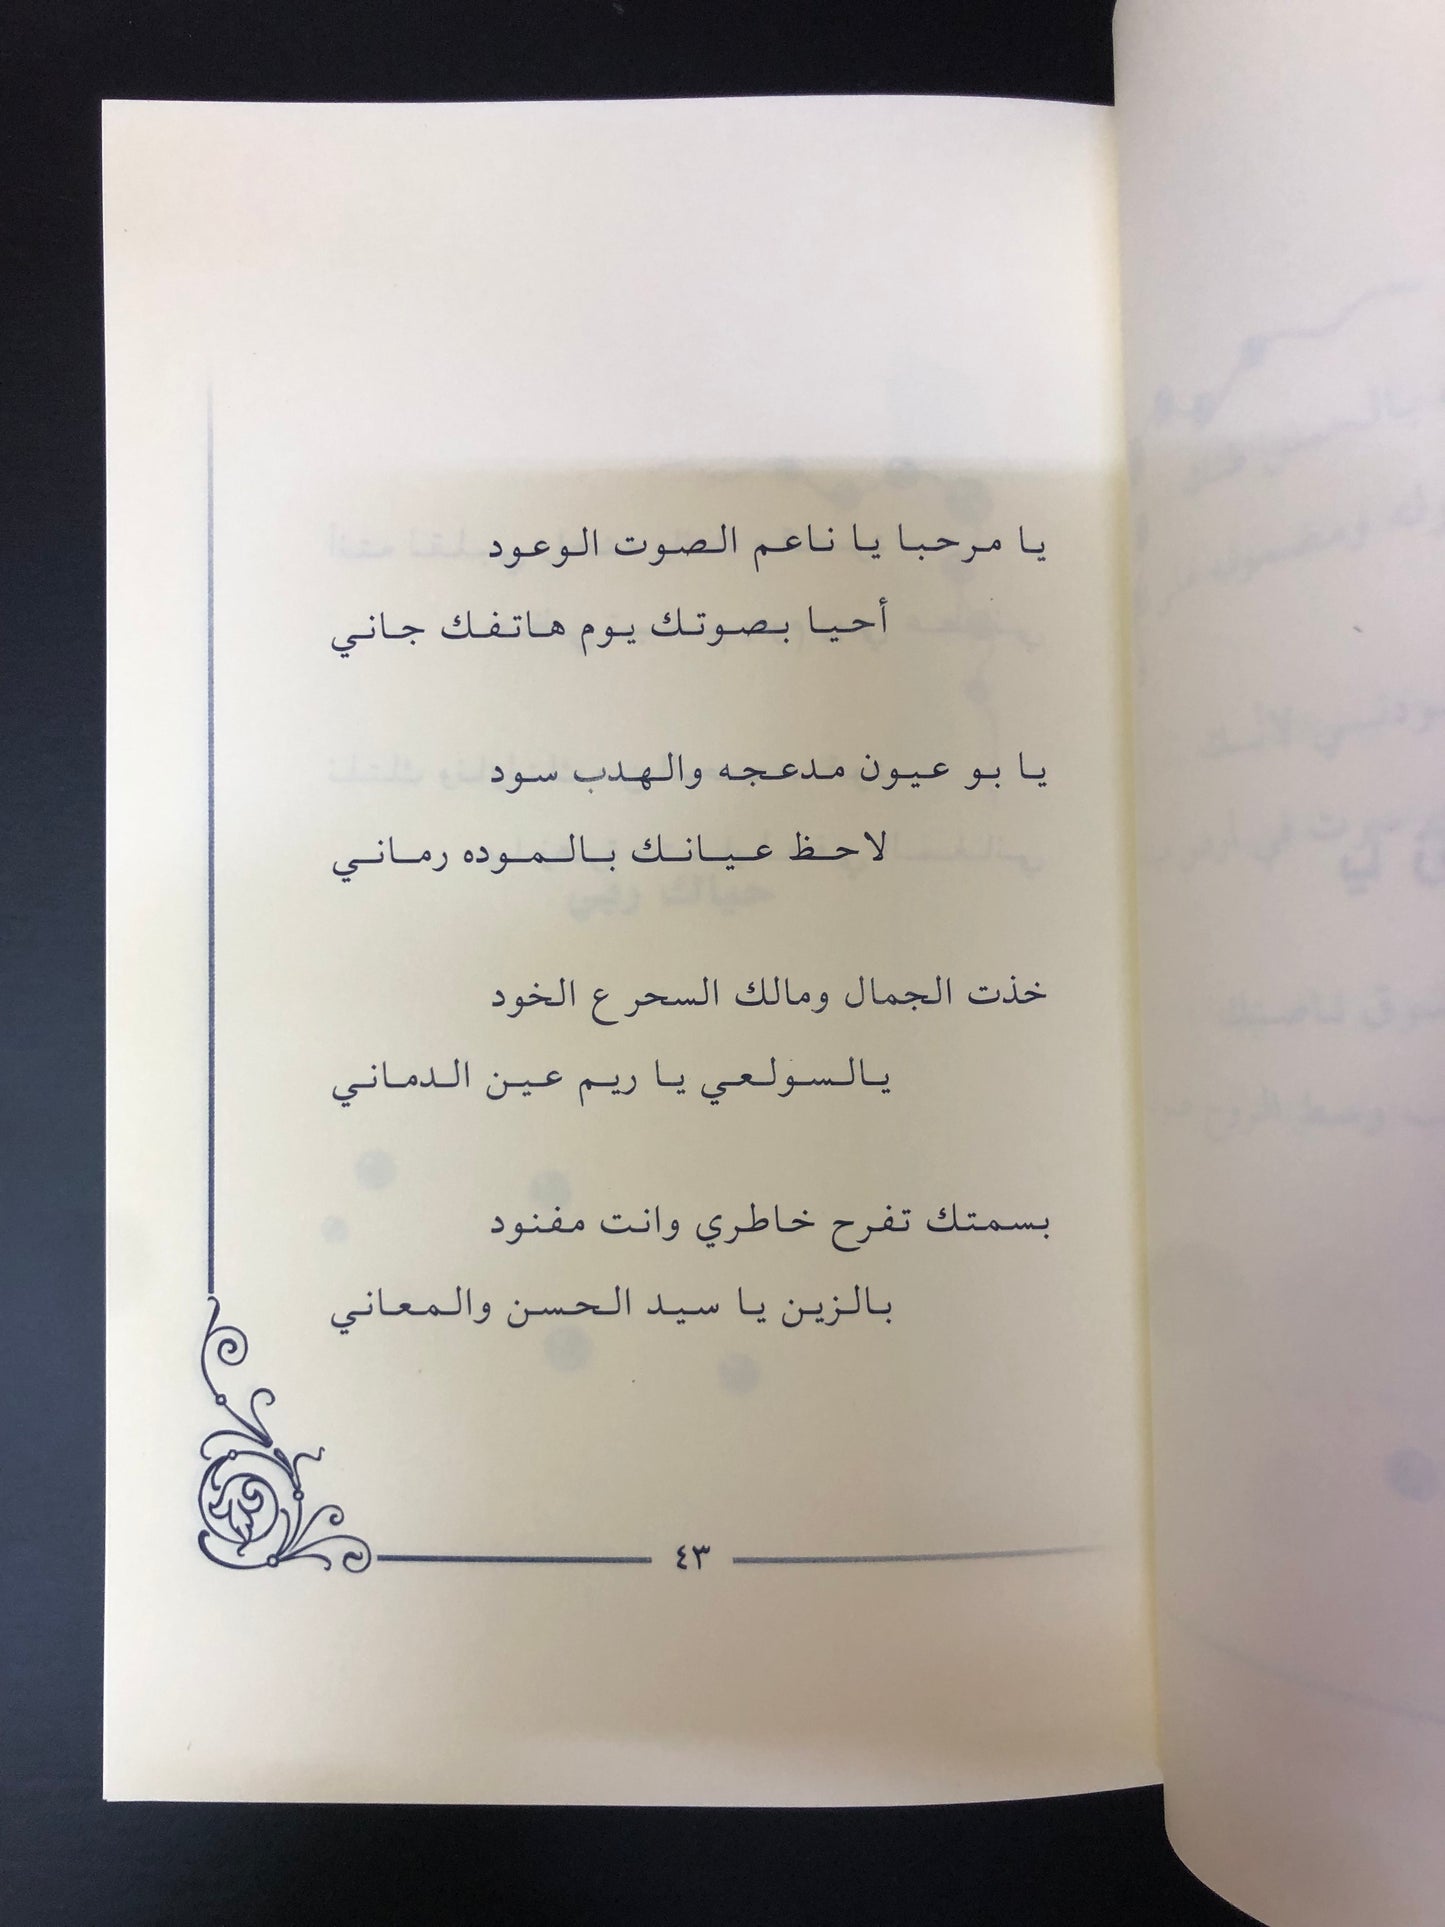 يا مرحبا يا ناعم الصوت الوعود
أحيا بصوتك يوم هاتفك جاني
يا بو عيون مدعجه والهدب سود
لاحظ عيانك بالموده رماني
خذت الجمال ومالك السحر ع الخود
يالسولعي يا ريم عين الدماني
بسمتك تفرح خاطري وانت مفنود
بالزين يا سيد الحسن والمعاني
٤٣